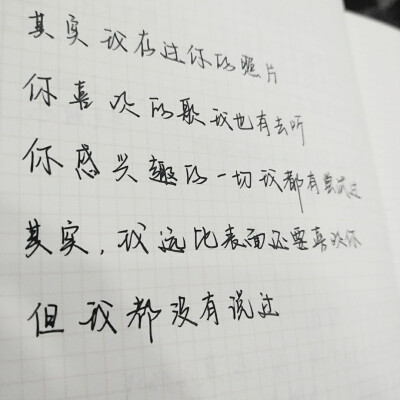 其实我存过你的照片
你喜欢的歌我也有去听
你感兴趣的一切我都有尝试过
其实,我远比表面还要喜欢你
但我都没有说过